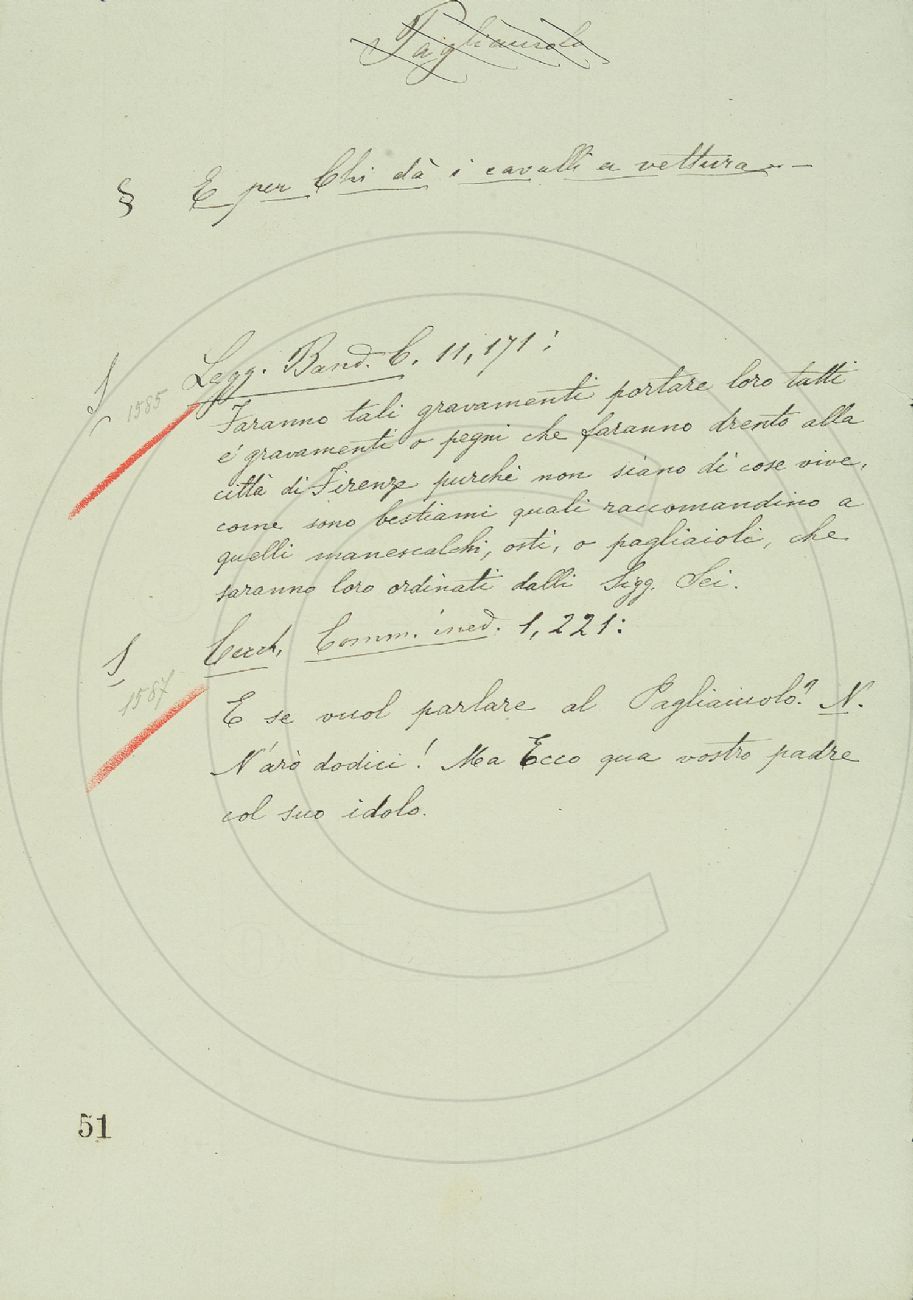 Pagliaiuolo
§ E per Chi dà i cavalli a vettura. –
S Legg. Band. C. 11, 171:
1585
Faranno tali gravamenti portare loro tutti
e' gravamenti o pegni che faranno drento alla
città di Firenze purchè non siano di cose vive,
come sono bestiami quali raccomandino a
quelli manescalchi, osti, o pagliaioli, che
saranno loro ordinati dalli Sigg. Sei.
S Cecch. Comm. ined. 1, 221:
1587
E se vuol parlare al Pagliaiuolo? N.
N'arò dodici! Ma Ecco qua vostro padre
col suo idolo.
51